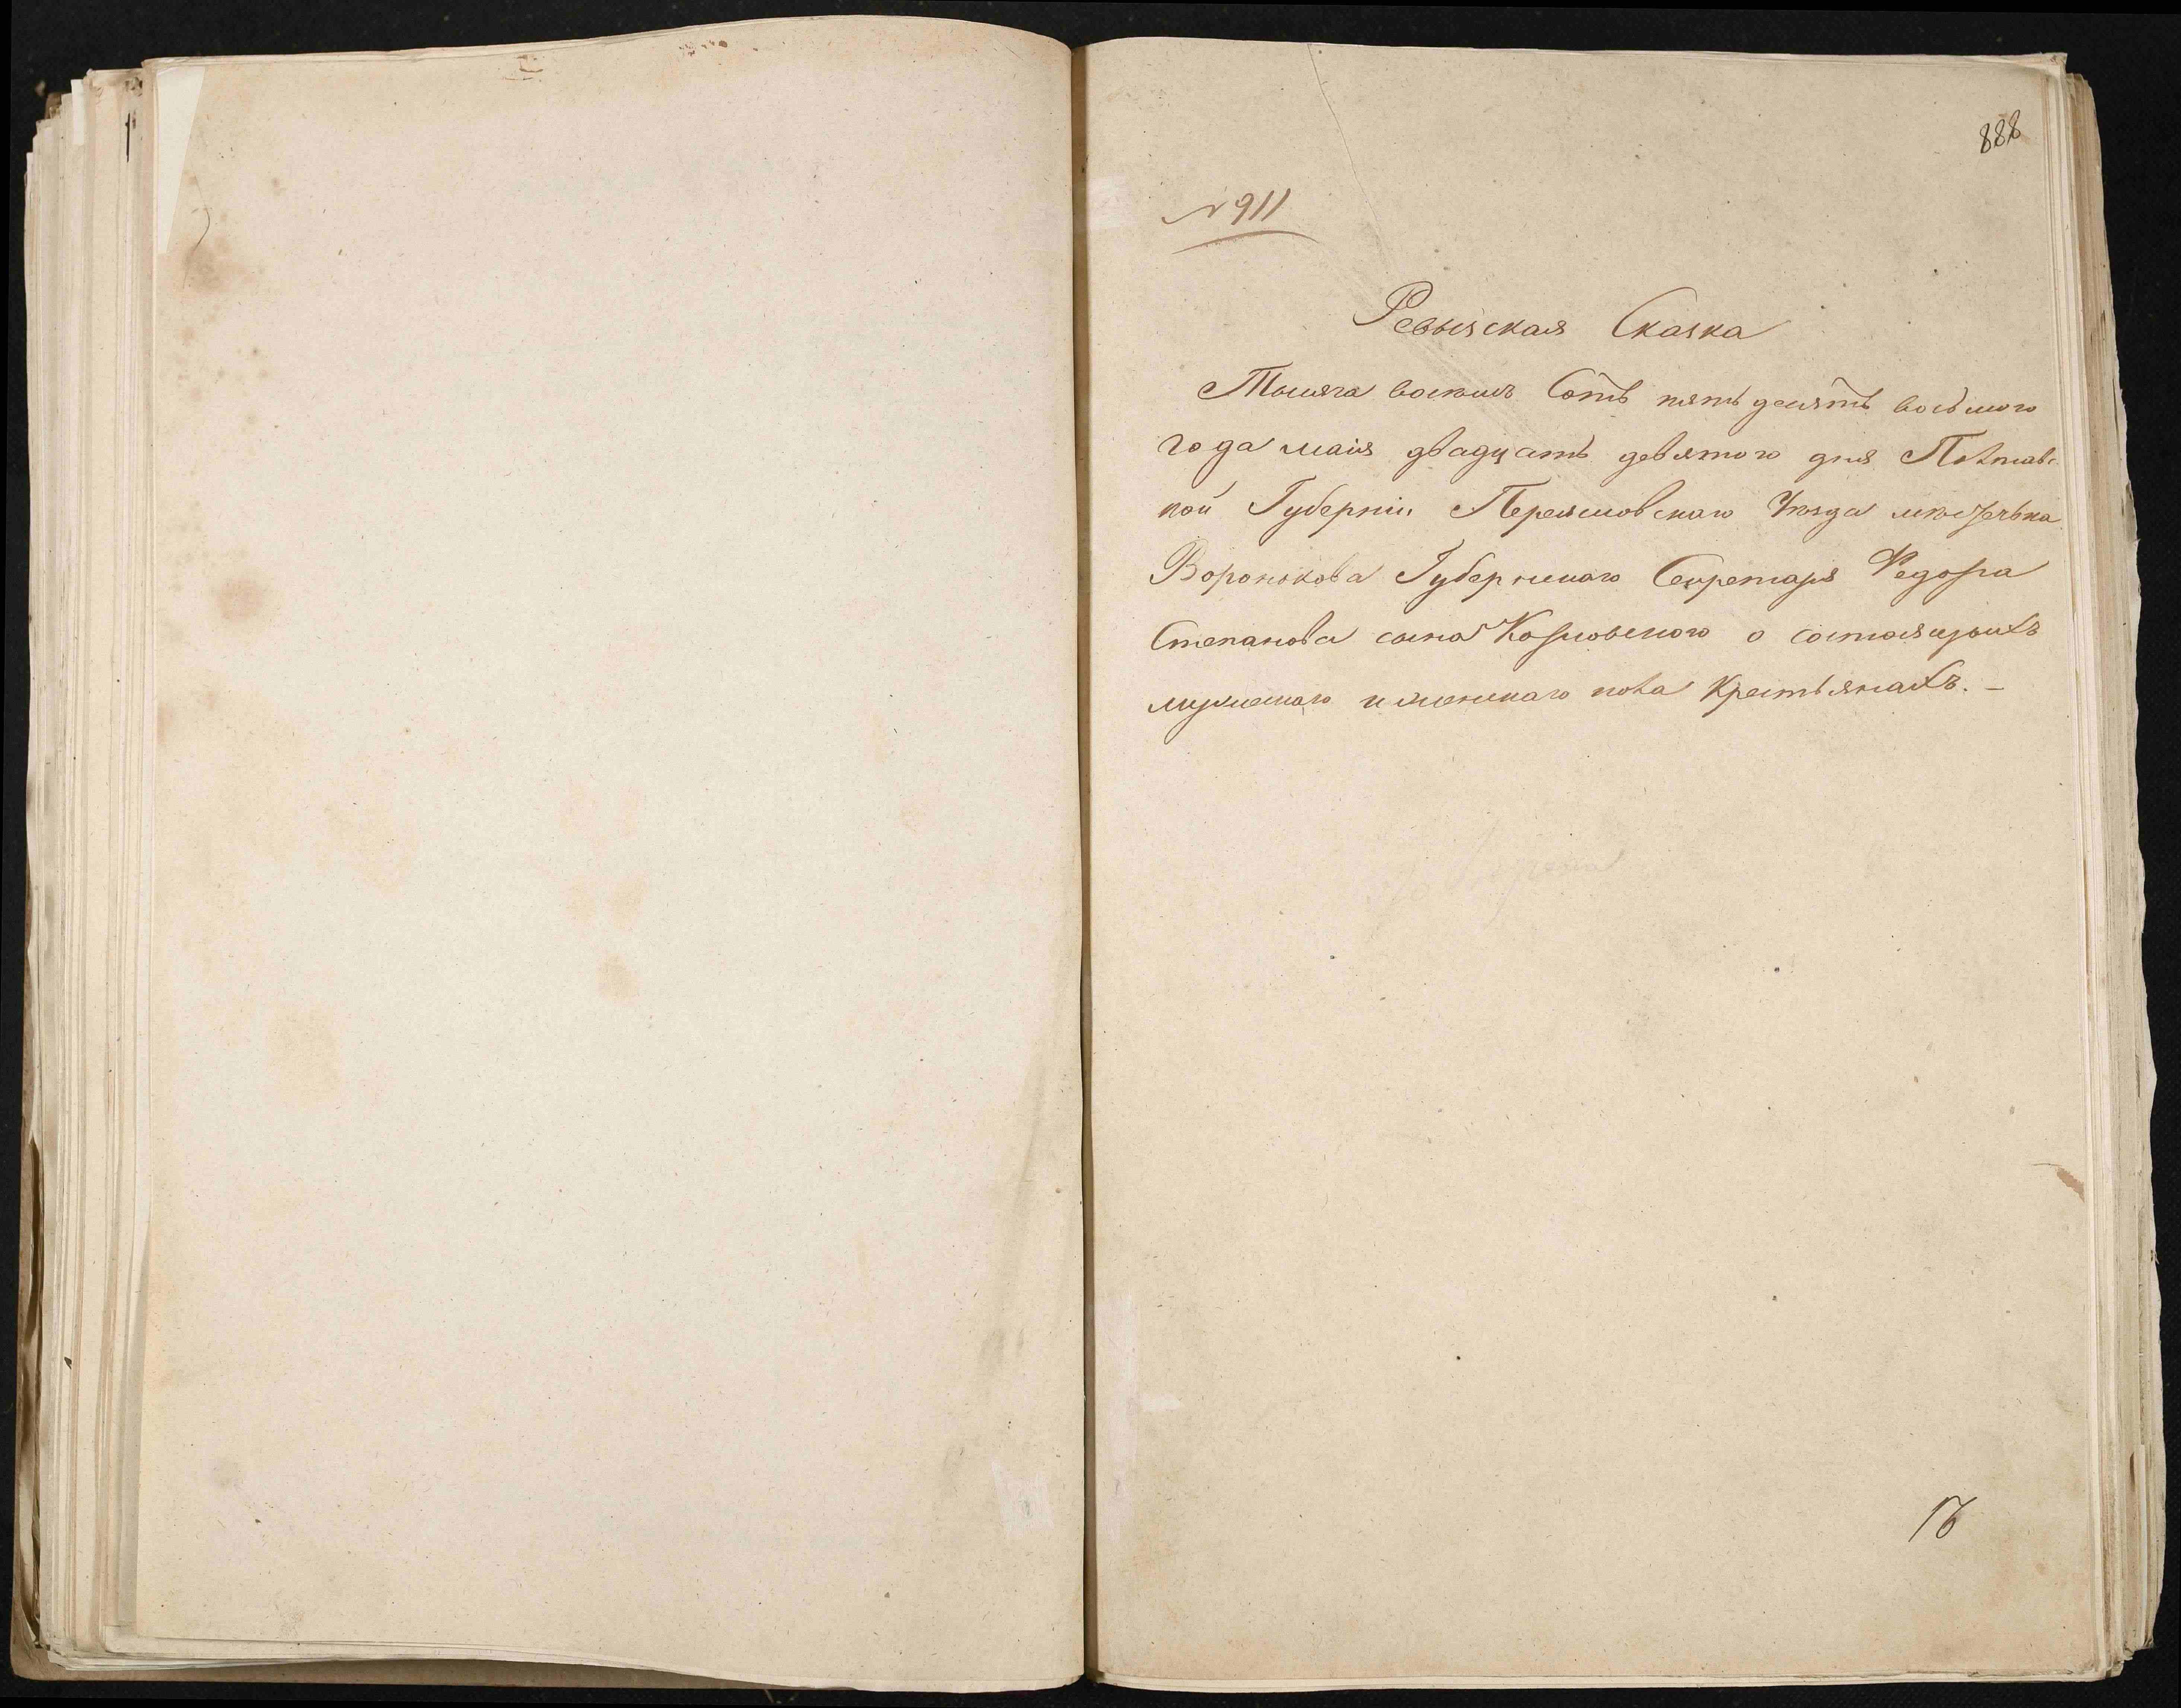 888
№ 911
Ревызская Сказка
Тысяча восемъ Сотъ пятьдесятъ восьмого
года маія двадцать девятого дня Полтавс-
кой Губерніи Переясловскаго Уезда местечька
Воронокова Губернскаго Секретаря Федора
Степанова сына Козловского о состоящихъ
мужескаго и женскаго пола Крестьянахъ. –